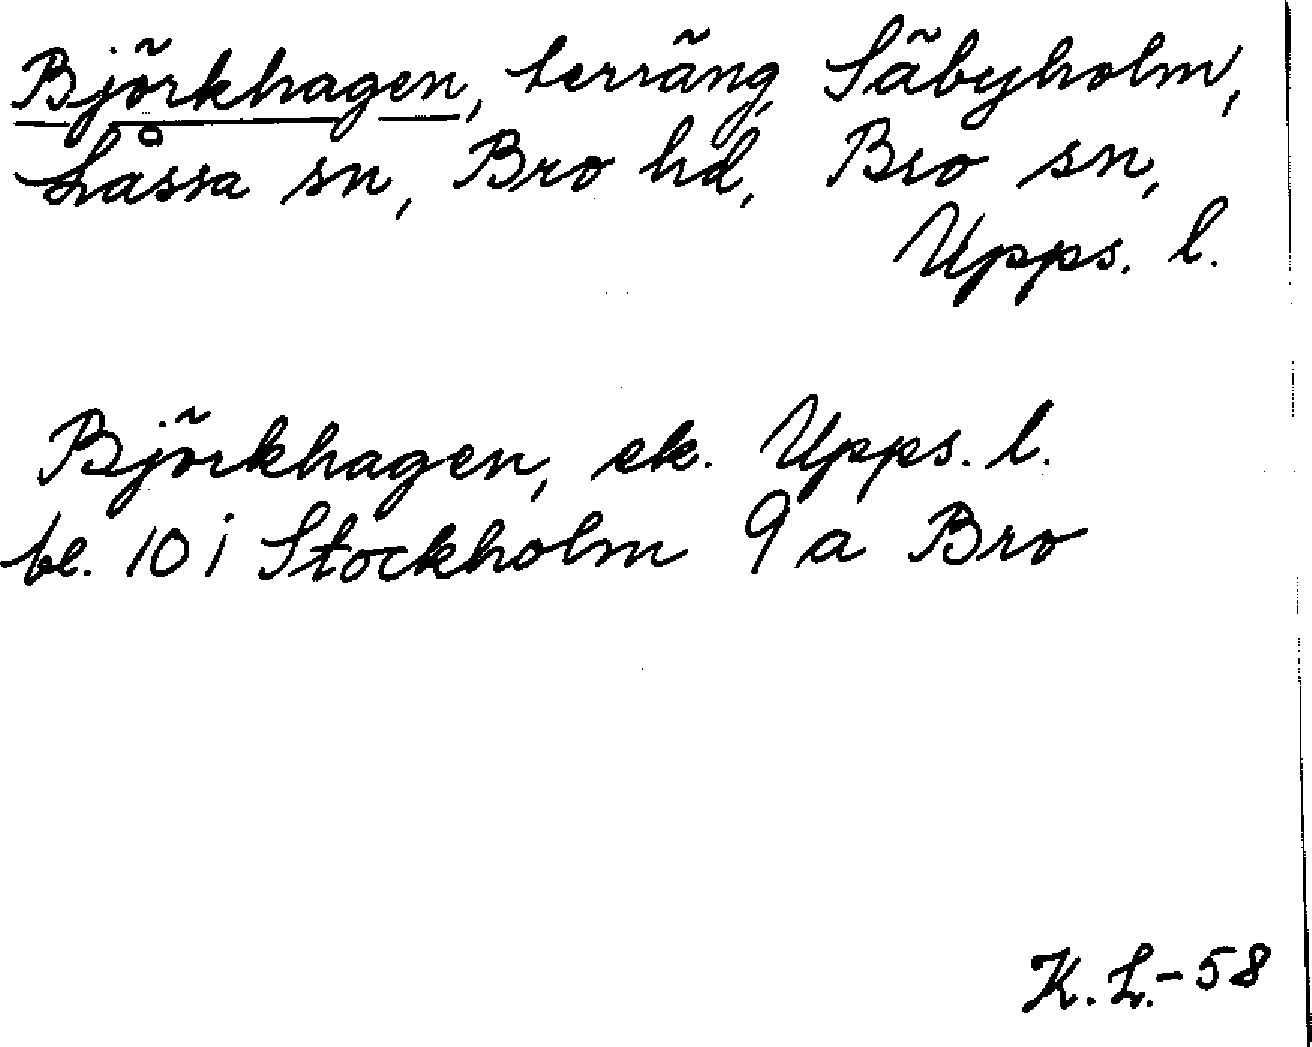 Björkhagen, terräng, Säbyholm,
Låssa sn, Bro hd, Bro sn,
Upps. l.
Björkhagen, ek. Upps. l.
bl. 10 i Stockholm 9 a Bro
K. L. - 58